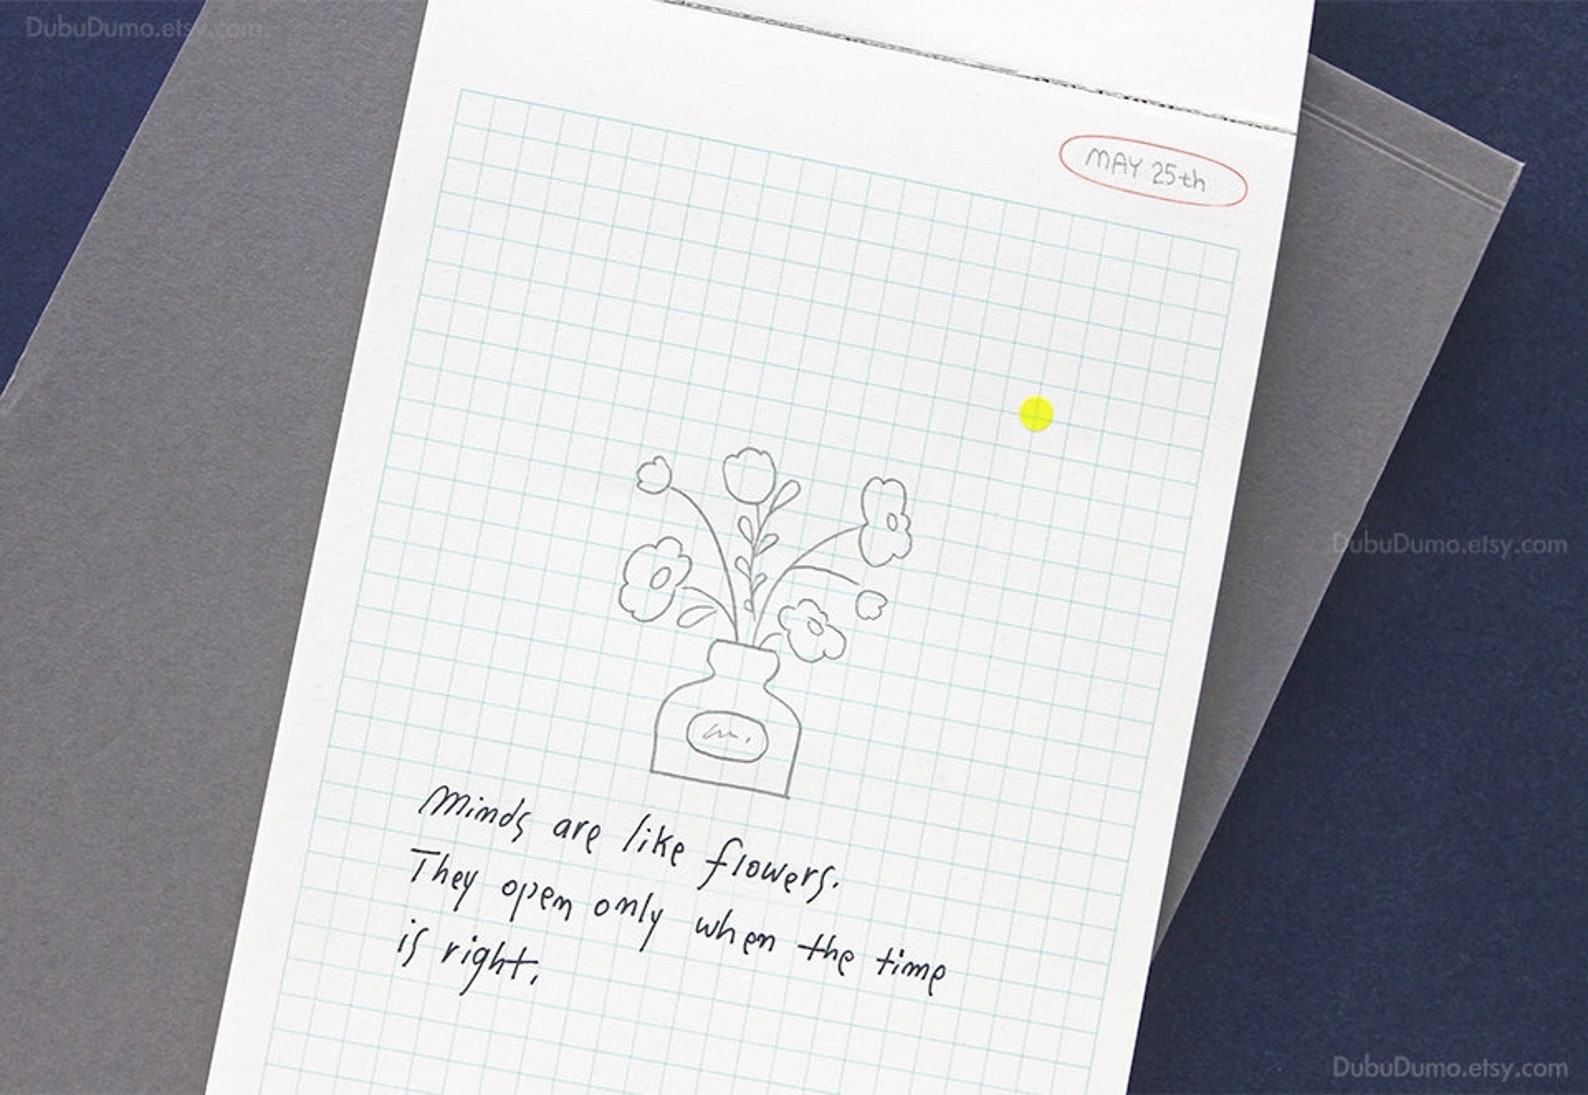 DubuDumo.etsy.com
MAY 25th
DubuDumo.etsy.com
Minds are like flowers.
They open only when the time
is right.
DubuDumo.etsy.com